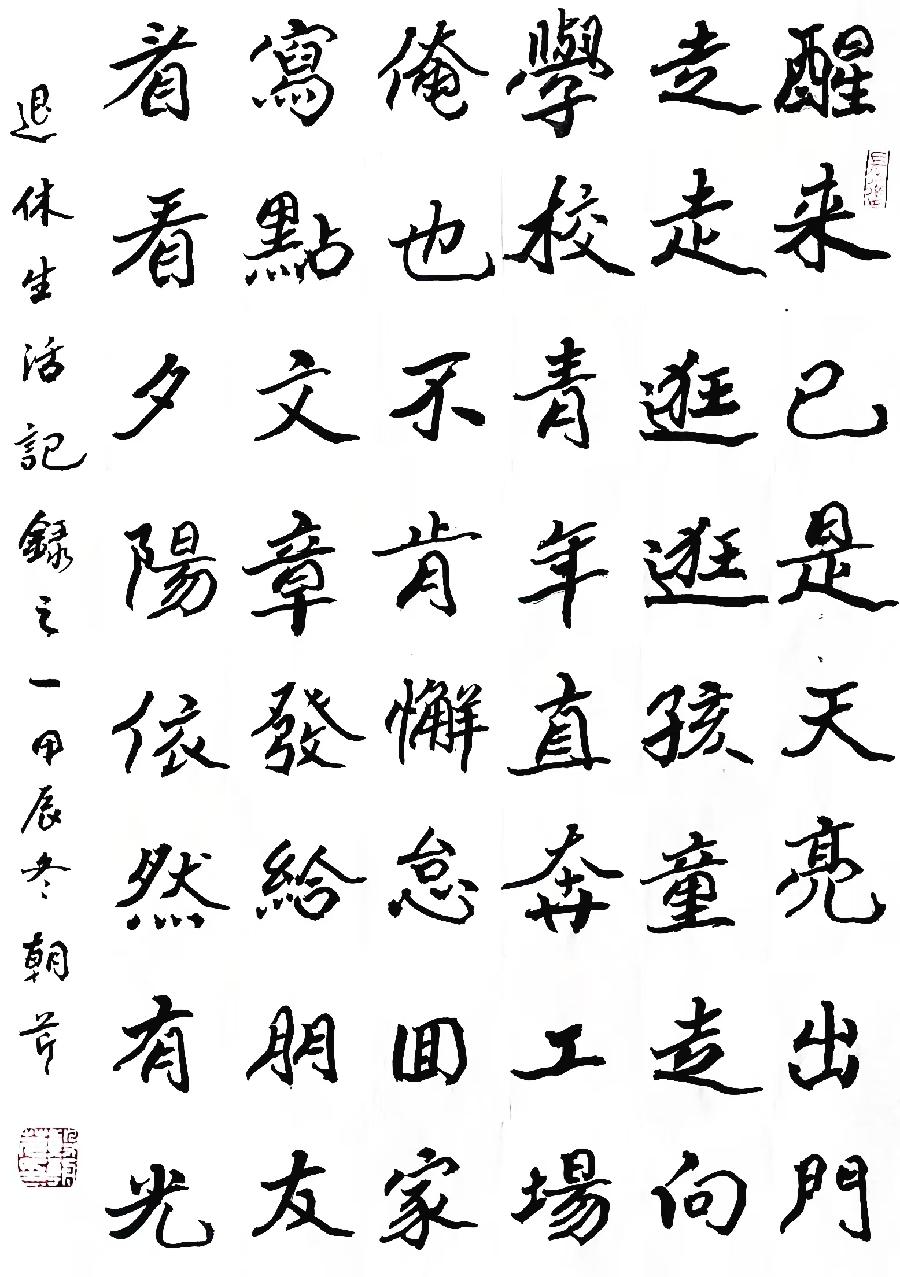 醒来已是天亮出門
走走逛逛孩童走向
學校青年直奔工場
俺也不肯懈怠回家
寫點文章發給朋友
看看夕陽依然有光
退休生活記録之一甲辰冬朝芹